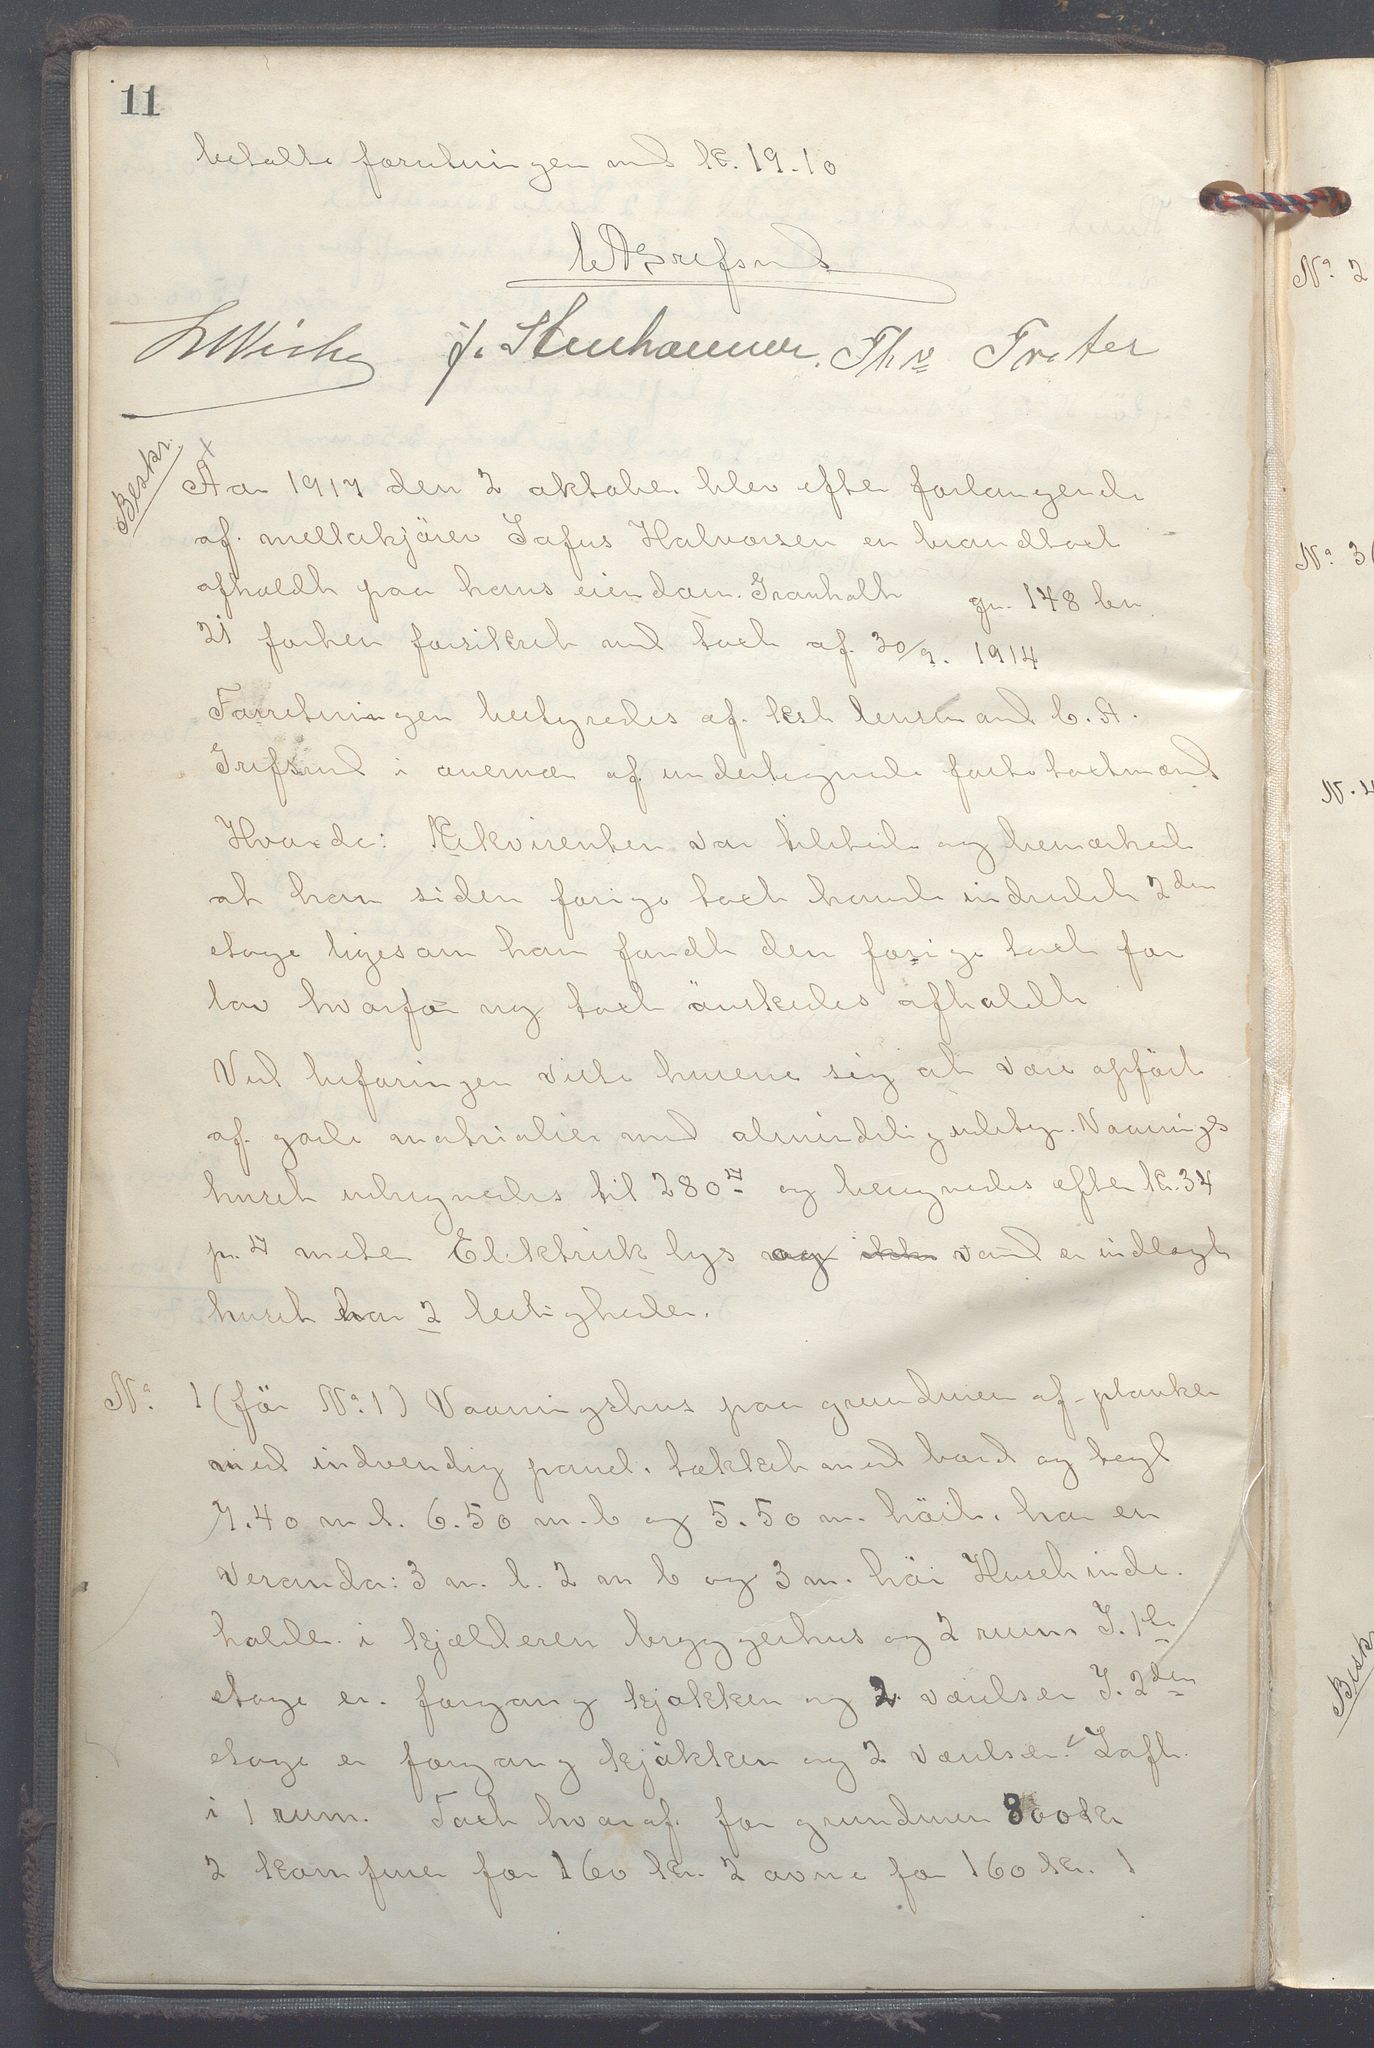 11
betalte forretningen med kr. 19.10
C A Grefsrud
J. Stenhammer. Thv. Træter
Beskr.
Aar 1917 den 2 oktober blev efter forlangende
af melkekjører Jafus Halvorsen en brandtaxt
afholdt paa hans eiendom Granholt gn. 148 bn.
21 forhen forsikret med taxt af 30/9. 1914
Forretningen bestyredes af kst lensmand C. A.
Grefsrud i overvær af undertegnede faste taxtmænd
Hvorda: Rekvirenten var tilstede og bemærked
at han siden forige taxt havde indredet 2den
etage ligesom han fandt den forige taxt for
lav hvorfor ny taxt önskedes afholdt
Ved befaringen viste husene sig at være opfört
af gode matrialier med almindelig udstyr. Vaanings
huset udregnedes til 280 □ og beregnedes efter kr. 34
pr. □ meter Elektrisk lys og ikke vand er indlagt
huset har 2 leiligheder.
No. 1 (för No. 1) Vaaningshus paa grundmur af planker
med indvendig panel. tækket med bord og tegl
7.40 m l. 6.50 m. b og 5.50 m. höit. har en
veranda: 3 m. l. 2 m b og 3 m. höi Huset inde.
holder i kjælderen bryggerhus og 2 rum. I. 1ste
etage er forgang kjökken og 2 værelser I. 2den
etage er forgang kjökken og 2 værelser. Loft
i 1 rum. Taxt hvoraf for grundmur 800 kr
2 komfurer for 160 kr. 2 ovne for 160 kr. 1
No. 2
No. 3
N. 4
Beskr